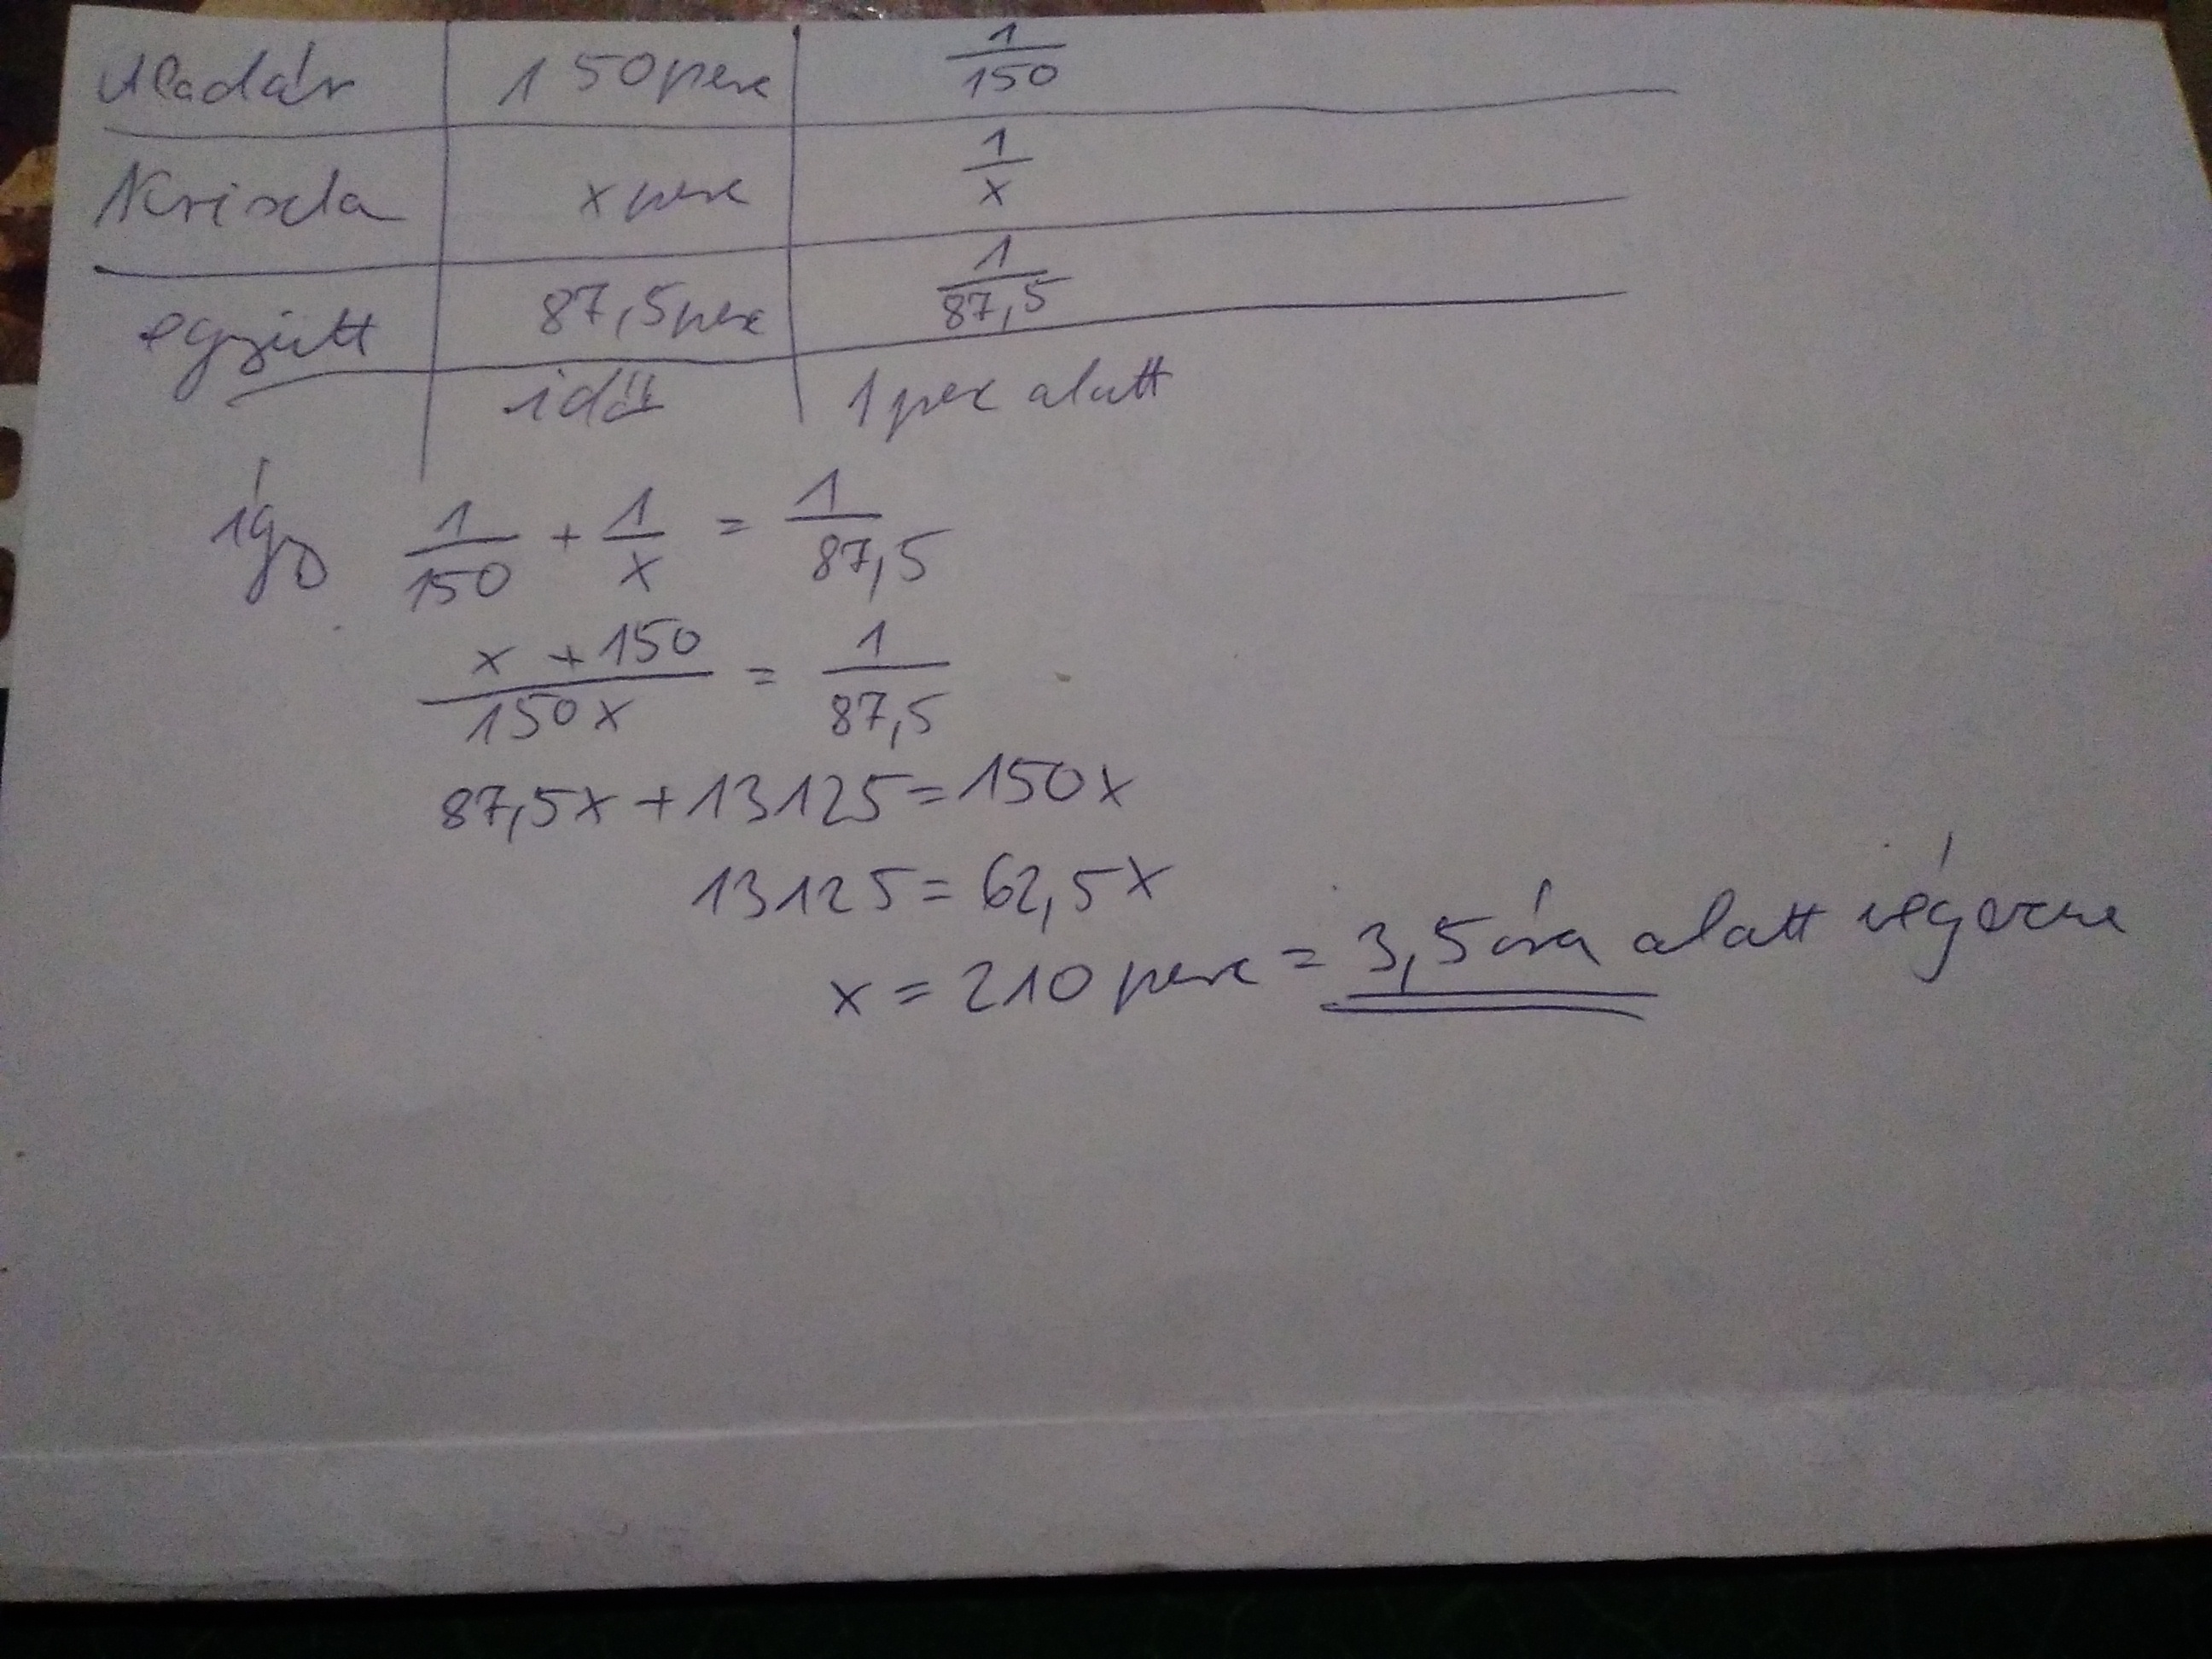 Aladár 150 perc 1/150
Kriszta x perc 1/x
együtt 87,5 perc 1/87,5
idő 1 perc alatt
így 1/150 + 1/x = 1/87,5
(x + 150)/150x = 1/87,5
87,5x + 13125 = 150x
13125 = 62,5x
x = 210 perc = 3,5 óra alatt végezne